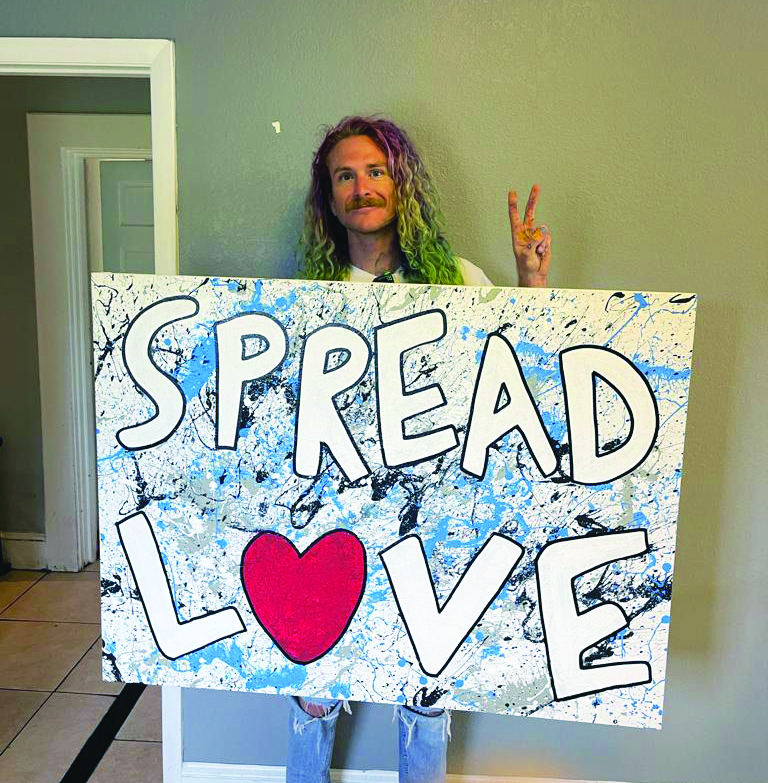 SPREAD
L❤VE